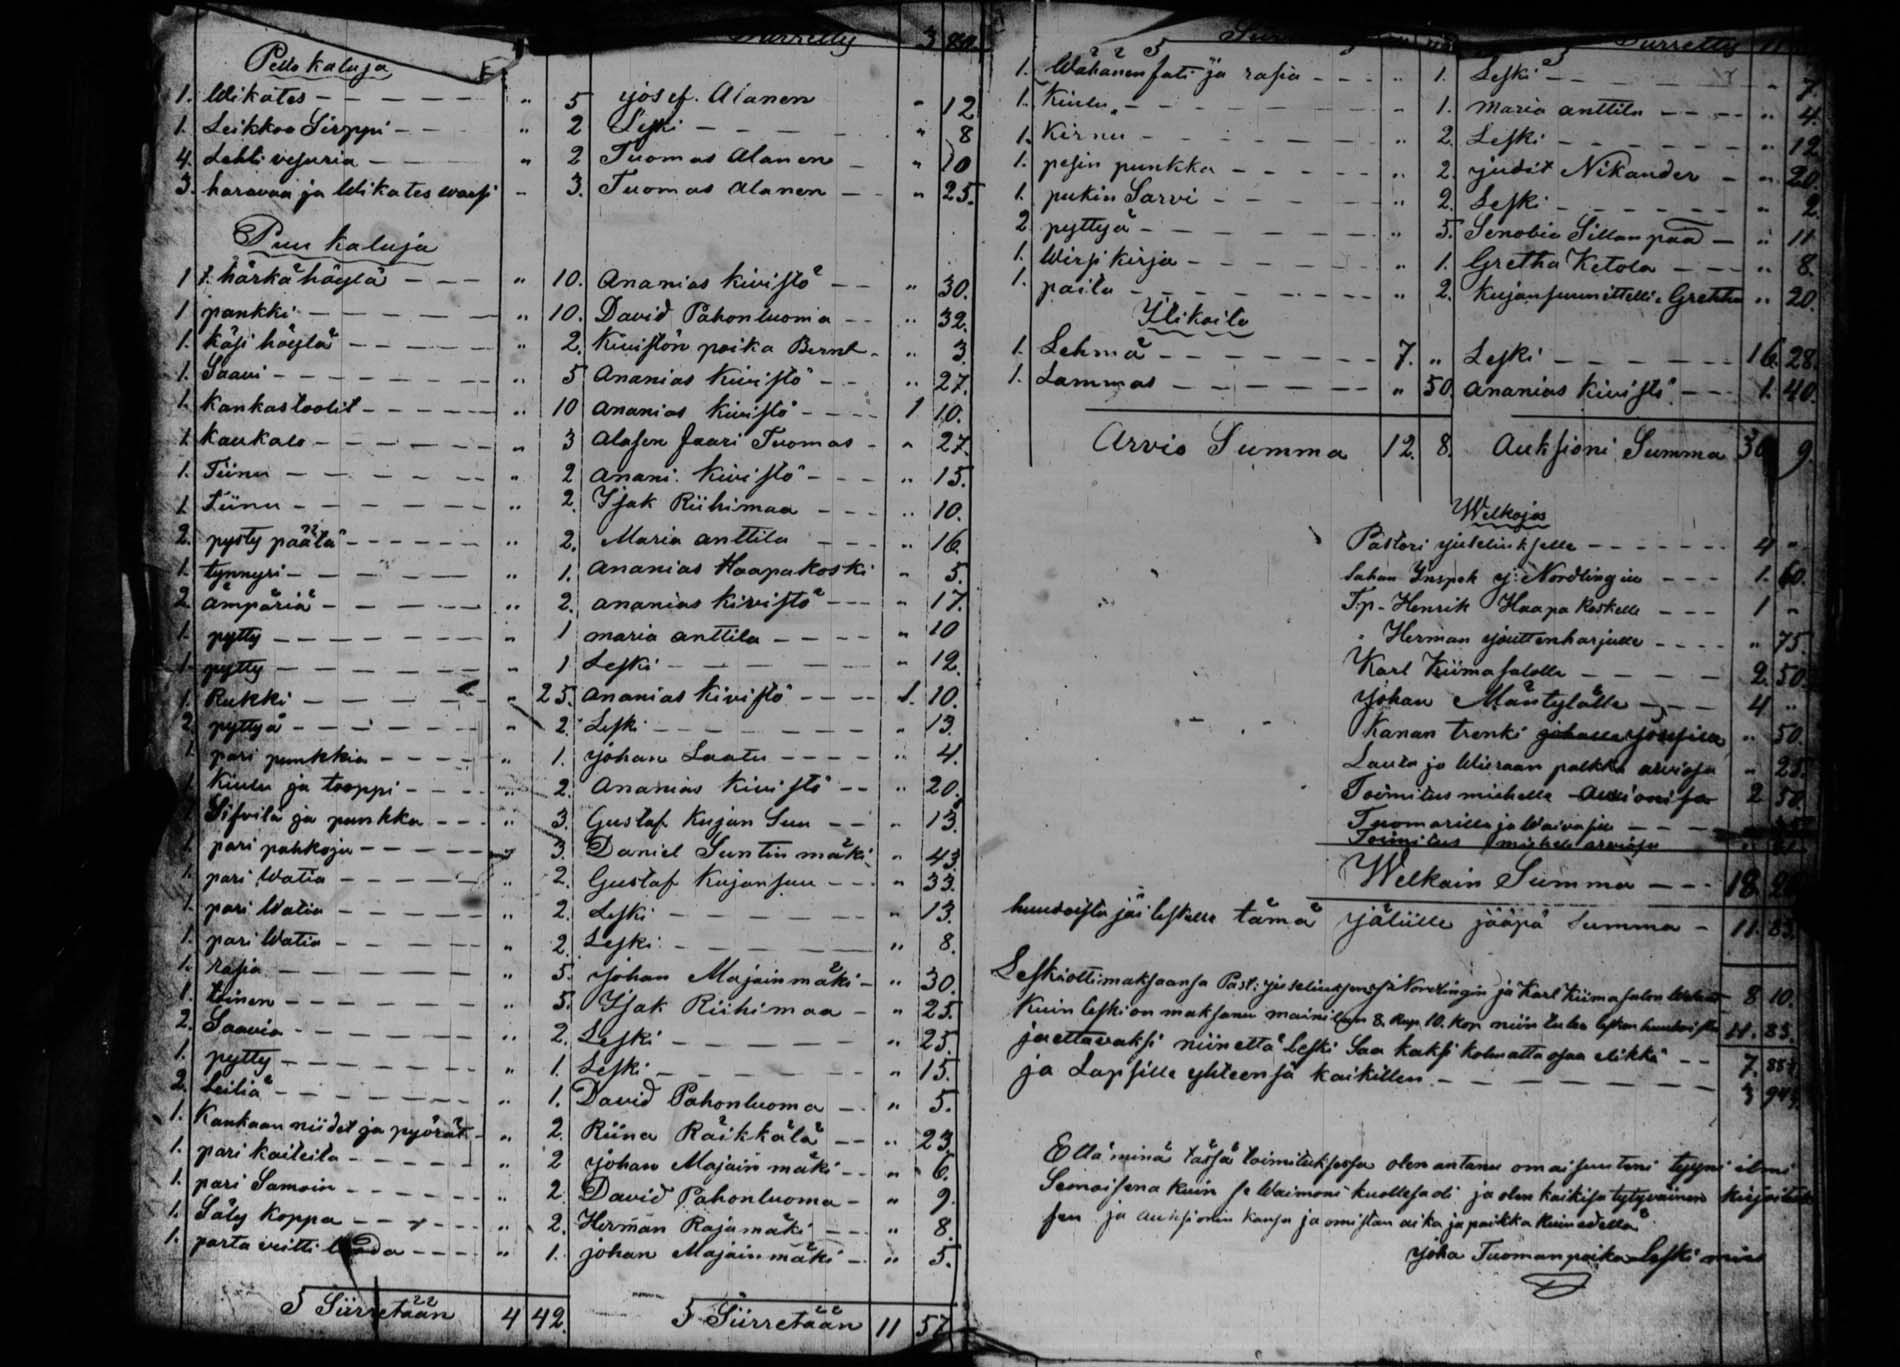 Siirretty 3
Pelto kaluja
1. Wikates " 5 Josef. Alanen " 12
1. Leikkoo Sirppi " 2 Leski " 8
4. Lehti vesuria " 2 Tuomas Alanen " 10
3. haravaa ja Wikates warsi " 3. Tuomas Alanen " 25.
Puu kaluja
1 härkä höylä " 10. Ananias Kivistö " 30.
1 pankki " 10. David Pahonluoma " 32.
1. Käsi höylä " 2. Kivistön poika Bernt " 3.
1. Saavi " 5 Ananias Kivistö " 27.
1. Kankastoolit " 10 Ananias Kivistö 1 10.
1. Kaukalo " 3 Alasen Jaari Tuomas " 27.
1. Tiinu " 2 Anani. Kivistö " 15.
1 Tiinu " 2. Isak Riihimaa " 10.
2. pysty päätä " 2. Maria Anttila " 16.
1. tynnyri " 1. Ananias Haapakoski " 5.
2. ämpäriä " 2. Ananias Kivistö " 17.
1. pytty " 1 Maria Anttila " 10
1. pytty " 1 Leski " 12.
1. Rukki " 25. Ananias Kivistö 1. 10.
2. pyttyä " 2. Leski " 13.
1. pari punkkia " 1. Johan Laatu " 4.
1. Kiulu ja tooppi " 2. Ananias Kivistö " 20.
1. Siivilä ja punkka " 3. Gustaf Kujan Suu " 13.
1. pari pahkoja " 3. Daniel Suntin mäki " 43.
1. pari Watia " 2. Gustaf Kujansuu " 33.
1. pari Watia " 2. Leski " 13.
1. pari Watia " 2. Leski " 8.
1. rasia " 5. Johan Majainmäki " 30.
1. toinen " 5. Isak Riihimaa " 25.
2. Saavia " 2. Leski " 25.
1. pytty " 1. Leski " 15.
2. Leiliä " 1. David Pahonluoma " 5.
1. Kankaan niidet ja pyörät " 2. Riina Räikkälä " 23.
1. pari kaiteita " 2 Johan Majain mäki " 6.
1. pari Samoin " 2. David Pahonluoma " 9.
1. Säly Koppa " 2. Herman Rajamäki " 8.
1. parta veitti " 1. Johan Majainmäki " 5.
Siirretään 4 42. Siirretään 11 57.
Siirretty 11
1. Wähänen Jati ja rasia " 1. Leski " 7.
1. Kiulu " 1. Maria Anttila " 4.
1. Kirnu " 2. Leski " 12
1. pesin punkka " 2. Judit Nikander " 20.
1. pukin Sarvi " 2. Leski " 2.
2 pyttyä " 5. Senobia Sillanpää " 11
1. Wirsi Kirja " 1. Gretha Ketola " 8.
1. paita " 2. Kujansuun Gretha " 20.
1. Lehmä 7. " Leski 16. 28.
1. Lammas " 50. Ananias Kivistö 1. 40.
Arvio Summa 12. 8. Auksioni Summa 30 9.
Welkojas
Pastori Juseliukselle 4 "
Sahan Inspek J: Nordlingin 1. 60.
T.p. Henrik Haapa Koskelle 1 "
" Herman Jouttenharjulle " 75.
Karl Kiimasalolle 2. 50.
Johan Mäntylälle 4 "
Kanan trenki Josefilla " 50.
Lauta ja Wieraan palkka arviosa " 25.
Toimitus miehelle Auxionisa 2 50.
Tuomarille ja Waivasille
Toimitus miehelle arviosa
Welkain Summa 18. 26
huudoista jäi leskelle tämä jälille jääpä Summa 11. 83.
Leski otti maksaansa Past: Juseliuksen J: Nordlingin ja Karl Kiimasalon 8 10.
Kuin leski on maksanu mainitun 8. Rup. 10. kop niin tulee lesken huudoista 11. 83.
jaettavaksi niin että Leski Saa kaksi kolmatta osaa elikkä 7.
ja Lapsille yhteensä kaikillen 3
Että minä tässä toimituksessa olen antanu omaisuuteni tyyni ilmi
Semoisena kuin se Waimoni kuollesa oli ja olen kaikisa tytyväinen kirjoituk
sen ja auksionin kansa ja omistan aika ja paikka kuin edellä
Joha Tuomanpoika Leski mies